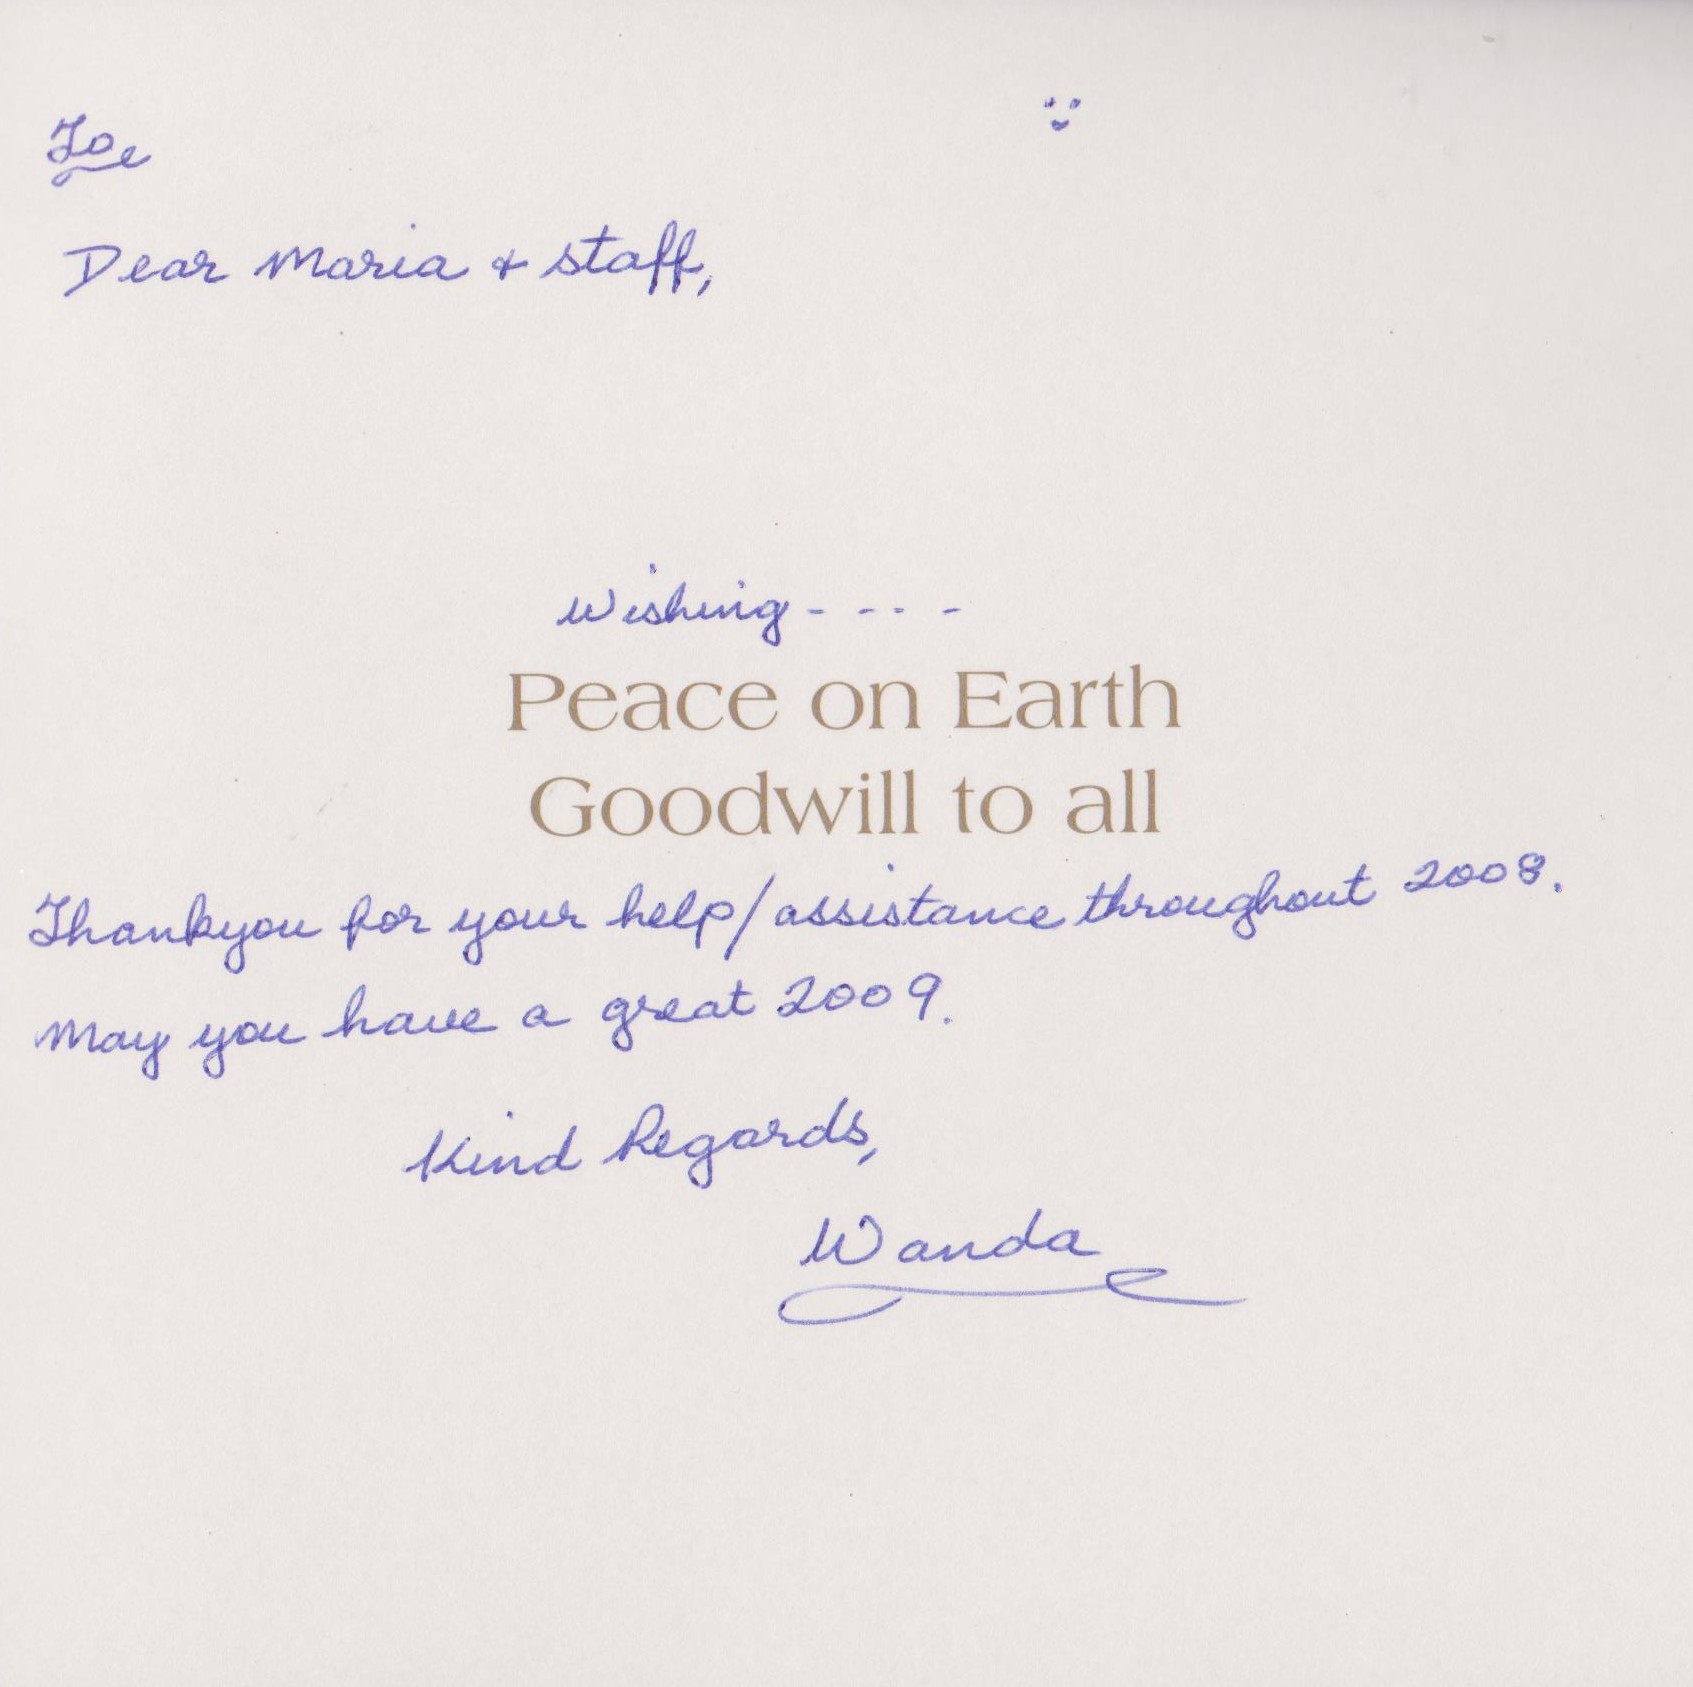 To
Dear Maria & staff,
Wishing - - - -
Peace on Earth
Goodwill to all
Thankyou for your help/assistance throughout 2008.
May you have a great 2009.
Kind Regards,
Wanda